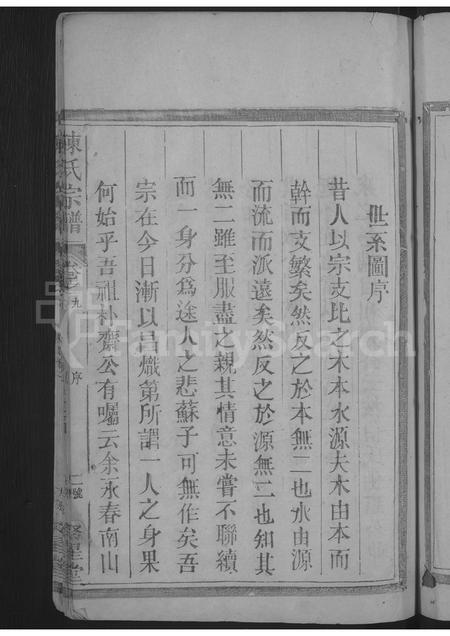 世系圖序
昔人以宗支比之木本水源夫木由本而
幹而支繁矣然反之於本無二也水由源
而流而派遠矣然反之於源無二也知其
無二雖至服盡之親其情意未嘗不聯續
而一身分為途人之悲蘇子可無作矣吾
宗在今日漸以昌熾第所謂一人之身果
何始乎吾祖朴齋公有囑云余永春南山
陳氏宗譜
卷 九
序
號
堂
FamilySearch